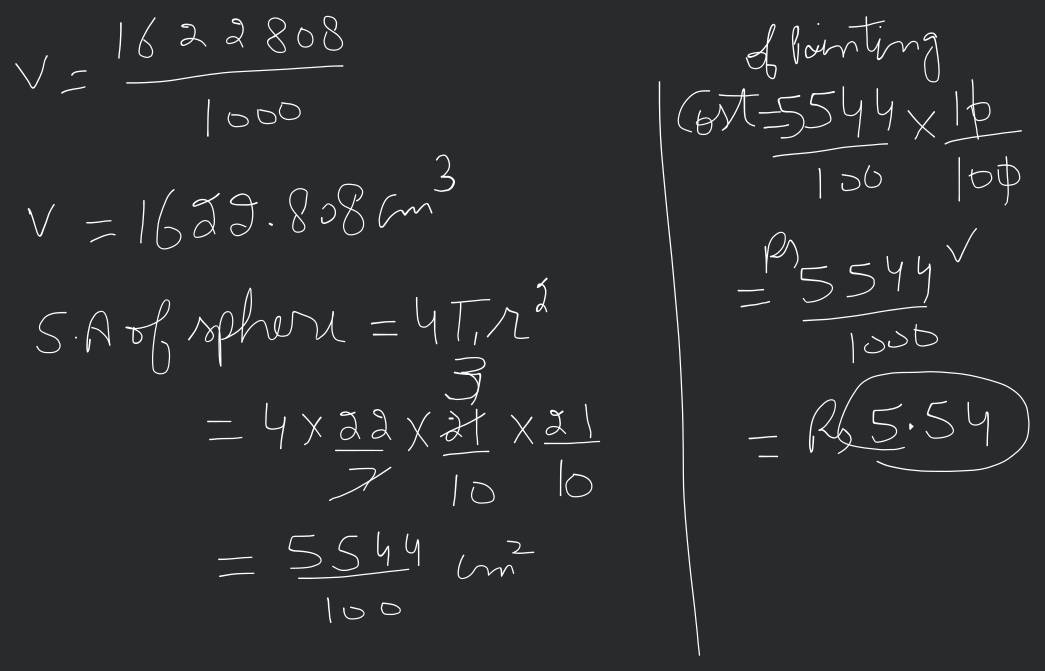 V = 1622808
1000
V = 1622.808 cm³
S.A of sphere = 4πr²
3
= 4 × 22 × 21 × 21
7 10 10
= 5544 cm²
100
of Painting
Cost = 5544 × 10
100 100
= Rs 5544 ✓
1000
= Rs 5.54